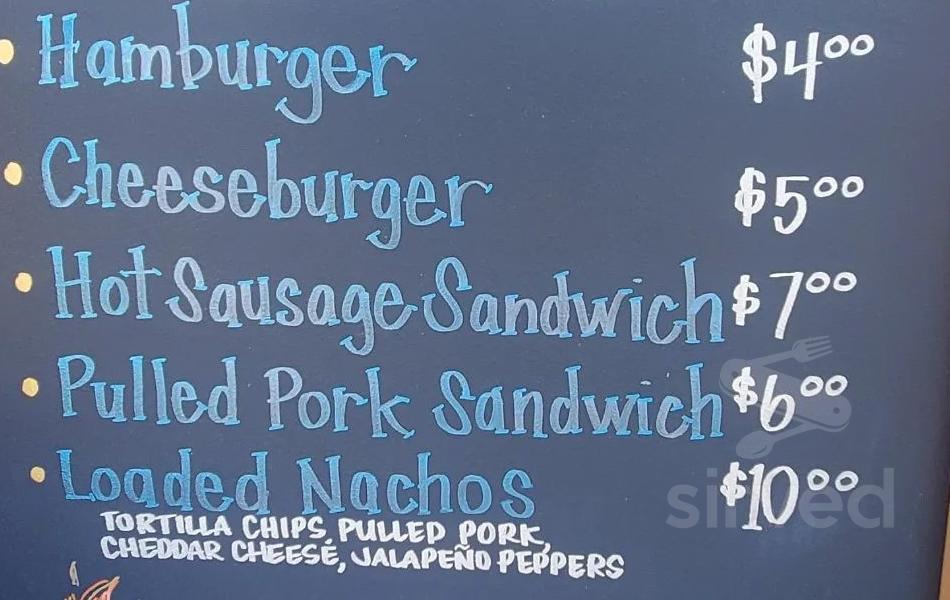 Hamburger $4⁰⁰
Cheeseburger $5⁰⁰
Hot Sausage Sandwich $7⁰⁰
Pulled Pork Sandwich $6⁰⁰
Loaded Nachos $10⁰⁰
TORTILLA CHIPS, PULLED PORK,
CHEDDAR CHEESE, JALAPEÑO PEPPERS